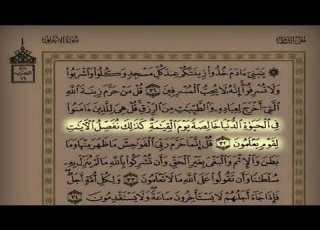 يَٰبَنِىٓ ءَادَمَ خُذُوا۟ زِينَتَكُمْ عِندَ كُلِّ مَسْجِدٍ وَكُلُوا۟ وَٱشْرَبُوا۟
وَلَا تُسْرِفُوٓا۟ إِنَّهُۥ لَا يُحِبُّ ٱلْمُسْرِفِينَ ٣١ قُلْ مَنْ حَرَّمَ زِينَةَ ٱللَّهِ
ٱلَّتِىٓ أَخْرَجَ لِعِبَادِهِۦ وَٱلطَّيِّبَٰتِ مِنَ ٱلرِّزْقِ قُلْ هِىَ لِلَّذِينَ ءَامَنُوا۟
فِى ٱلْحَيَوٰةِ ٱلدُّنْيَا خَالِصَةً يَوْمَ ٱلْقِيَٰمَةِ كَذَٰلِكَ نُفَصِّلُ ٱلْءَايَٰتِ
لِقَوْمٍ يَعْلَمُونَ ٣٢ قُلْ إِنَّمَا حَرَّمَ رَبِّىَ ٱلْفَوَٰحِشَ مَا ظَهَرَ مِنْهَا وَمَا
بَطَنَ وَٱلْإِثْمَ وَٱلْبَغْىَ بِغَيْرِ ٱلْحَقِّ وَأَن تُشْرِكُوا۟ بِٱللَّهِ مَا لَمْ يُنَزِّلْ بِهِۦ
سُلْطَٰنًا وَأَن تَقُولُوا۟ عَلَى ٱللَّهِ مَا لَا تَعْلَمُونَ ٣٣ وَلِكُلِّ أُمَّةٍ أَجَلٌ
فَإِذَا جَآءَ أَجَلُهُمْ لَا يَسْتَأْخِرُونَ سَاعَةً وَلَا يَسْتَقْدِمُونَ ٣٤